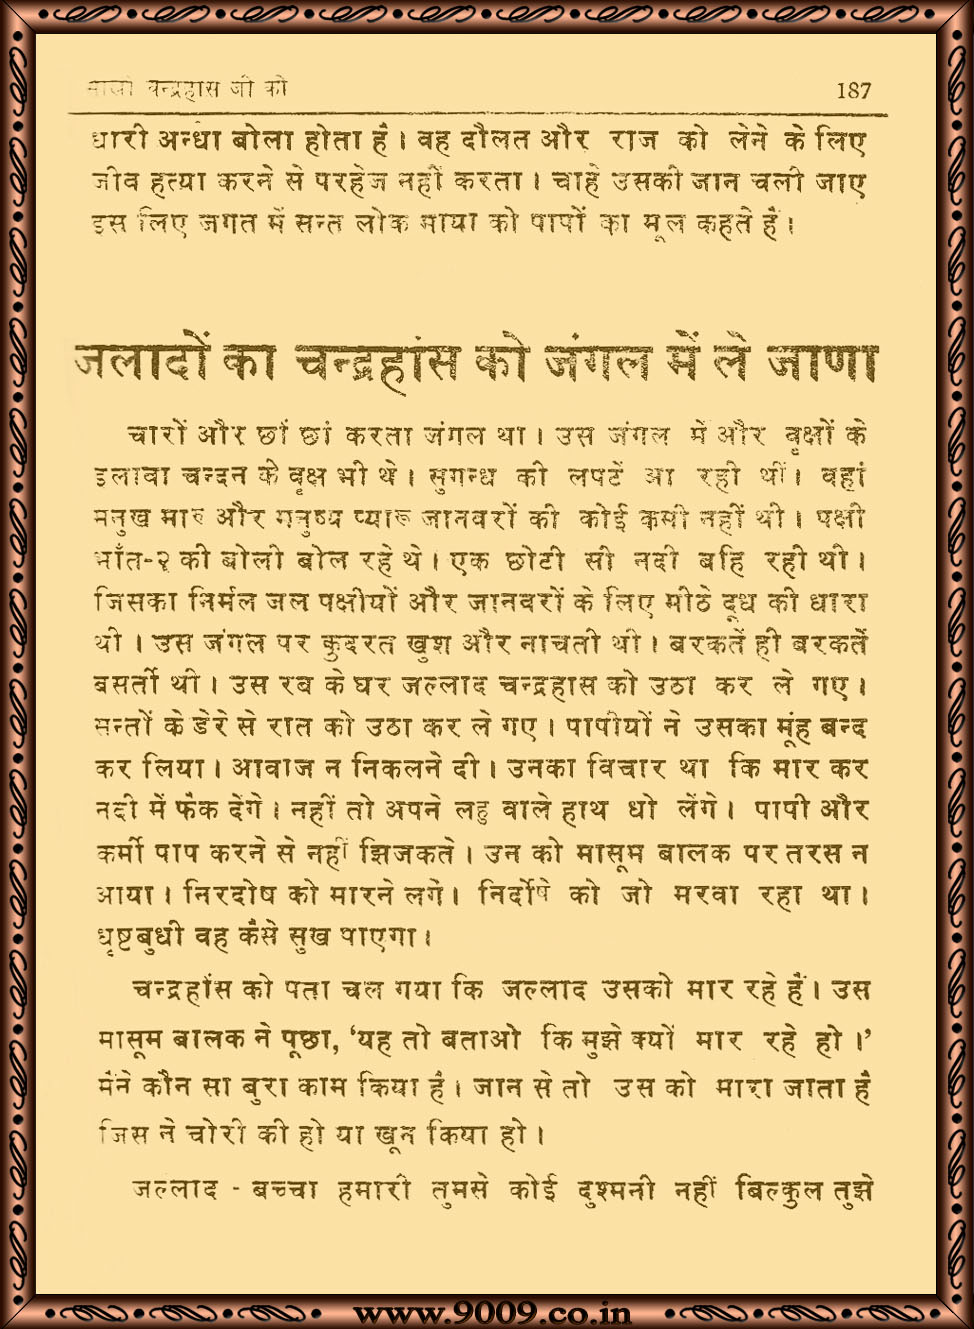 चन्द्रहास जी की 187
धारी अन्धा बोला होता है । वह दौलत और राज को लेने के लिए
जीव हत्या करने से परहेज नहीं करता । चाहे उसकी जान चली जाए
इस लिए जगत में सन्त लोक माया को पापों का मूल कहते हैं ।
जलादों का चन्द्रहांस को जंगल में ले जाणा
चारों और छां छां करता जंगल था । उस जंगल में और वृक्षों के
इलावा चन्दन के वृक्ष भी थे । सुगन्ध की लपटें आ रही थीं । वहां
मनुख मार और मनुष्य प्यारू जानवरों की कोई कमी नहीं थी । पक्षी
भाँत-२ की बोली बोल रहे थे । एक छोटी सी नदी बहि रही थी ।
जिसका निर्मल जल पक्षीयों और जानवरों के लिए मीठे दूध की धारा
थी । उस जंगल पर कुदरत खुश और नाचती थी । बरकतें ही बरकतें
बसतीं थी । उस रब के घर जल्लाद चन्द्रहास को उठा कर ले गए ।
सन्तों के डेरे से रात को उठा कर ले गए । पापीयों ने उसका मूंह बन्द
कर लिया । आवाज न निकलने दी । उनका विचार था कि मार कर
नदी में फैंक देंगे । नहीं तो अपने लहु वाले हाथ धो लेंगे । पापी और
कर्मी पाप करने से नहीं झिजकते । उन को मासूम बालक पर तरस न
आया । निरदोष को मारने लगे । निर्दोष को जो मरवा रहा था ।
धृष्टबुधी वह कैसे सुख पाएगा ।
चन्द्रहांस को पता चल गया कि जल्लाद उसको मार रहे हैं । उस
मासूम बालक ने पूछा, ‘यह तो बताओ कि मुझे क्यों मार रहे हो ।’
मैंने कौन सा बुरा काम किया है । जान से तो उस को मारा जाता है
जिस ने चोरी की हो या खून किया हो ।
जल्लाद - बच्चा हमारी तुमसे कोई दुश्मनी नहीं बिल्कुल तुझे
www.9009.co.in